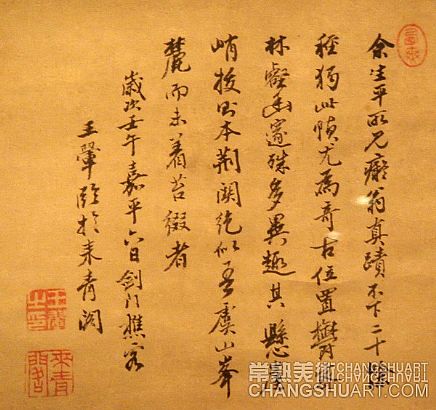 余生平所見癡翁真蹟不下二十餘
種獨此幀尤為奇古位置鬱
林壑幽邃殊多異趣其懸崖
峭拔則本荊關絕似吾虞山峯
麓而未着苔綴者
歲次壬午嘉平六日劍門樵客
王翬臨於來青閣
王翬之印
來青閣
常熟美術 CHANGSHUART
CHANGSHUART.COM